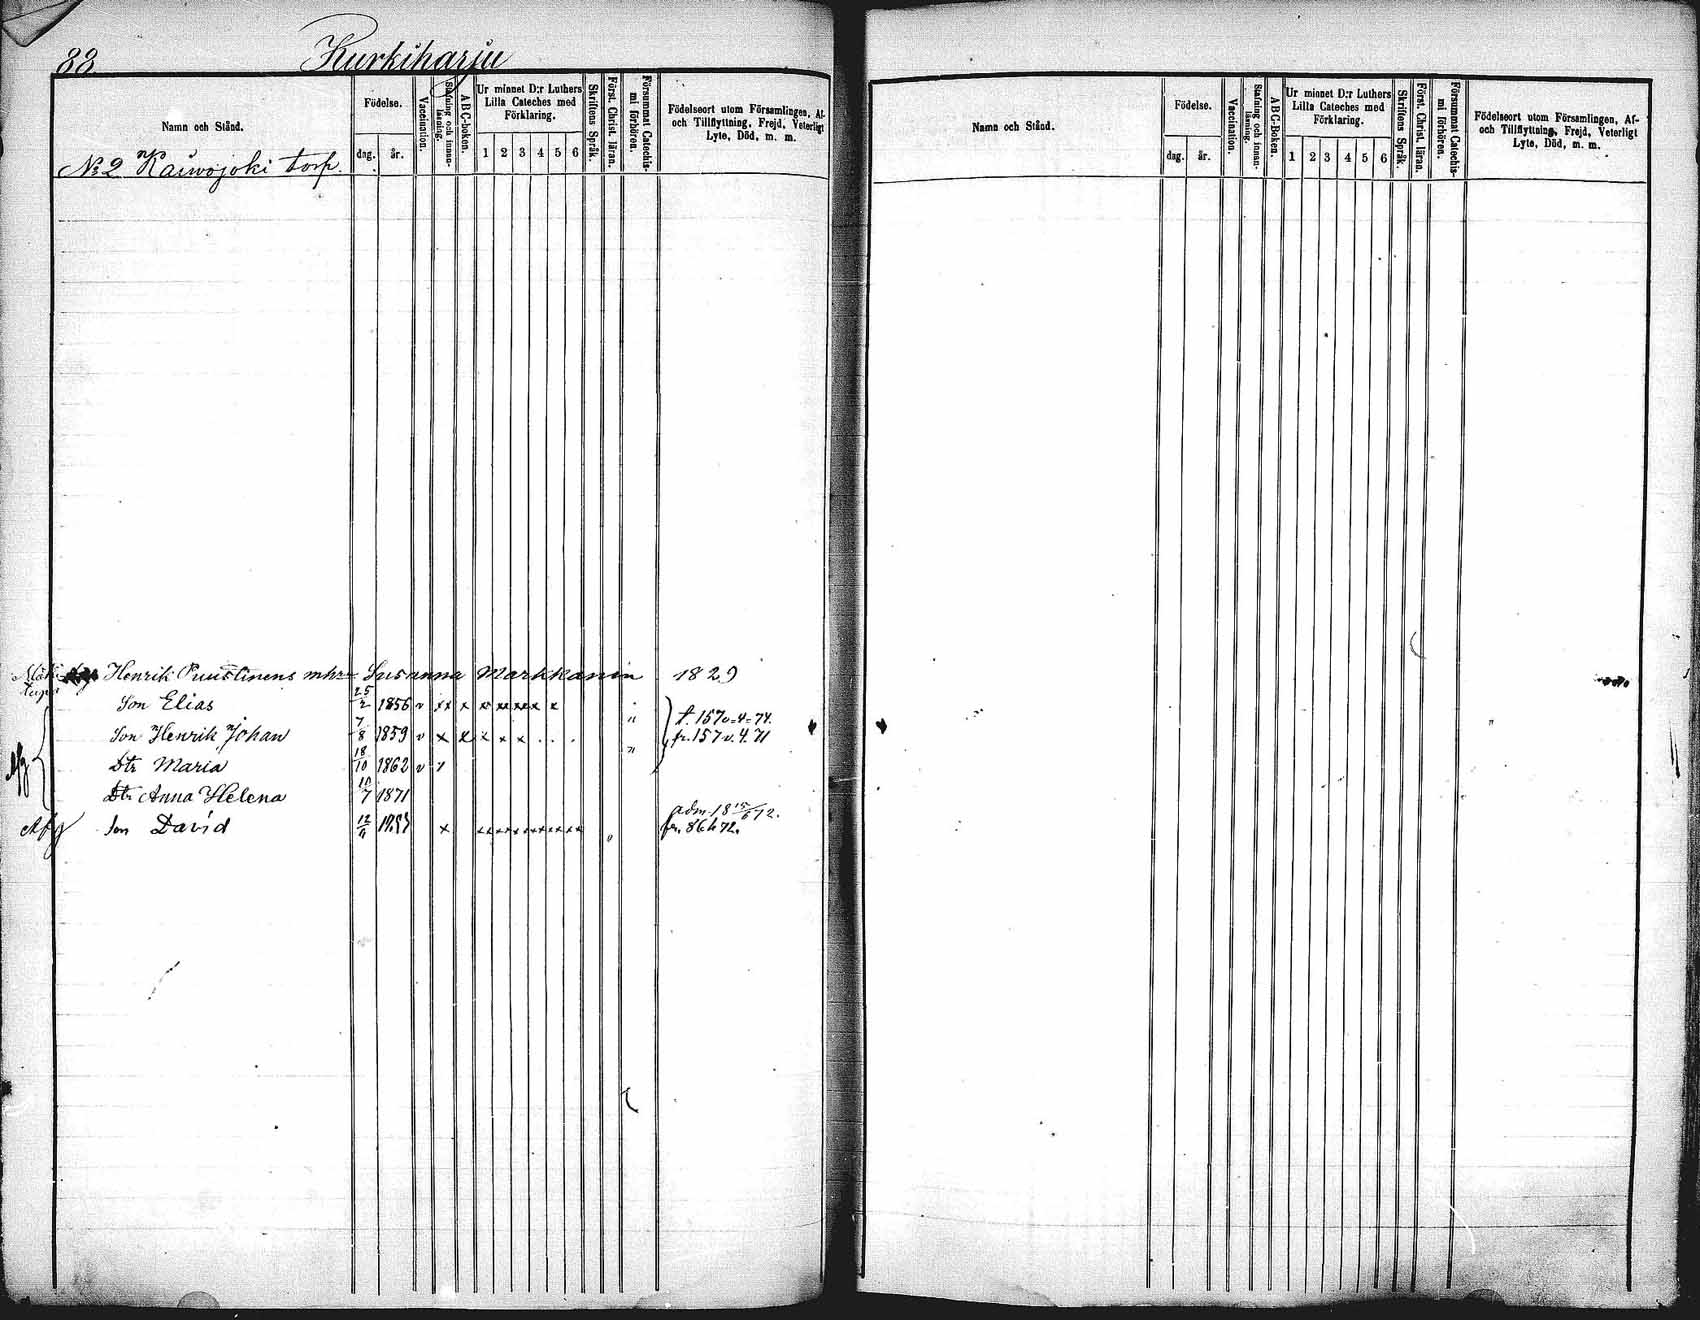 88 Kurkiharju
Namn och Stånd.
Födelse.
dag. år.
Vaccination.
Stafning och innan-
läsning.
ABC-boken.
Ur minnet D:r Luthers
Lilla Cateches med
Förklaring.
1 2 3 4 5 6
Skriftens Språk.
Först. Christ. läran.
Försummat Catechis-
mi förhören.
Födelseort utom Församlingen, Af-
och Tillflyttning, Frejd, Veterligt
Lyte, Död, m. m.
№ 2 Kaiwojoki torp.
Henrik Puustinens Susanna Markkanin 1829
Son Elias 25/2 1856 v xx x
Son Henrik Johan 7/8 1859 v x x x x x
t. 157 v. 4 = 74.
fr. 157 v. 4. 71
Dtr Maria 18/10 1862 v
Dtr Anna Helena 10/7 1871
Afg Son David x
adm. 18 15/6 72.
fr. 86 h 72.
Namn och Stånd.
Födelse.
dag. år.
Vaccination.
Stafning och innan-
läsning.
ABC-Boken.
Ur minnet D:r Luthers
Lilla Cateches med
Förklaring.
1 2 3 4 5 6
Skriftens Språk.
Först. Christ. läran.
Försummat Catechis-
mi förhören.
Födelseort utom Församlingen, Af-
och Tillflyttning, Frejd, Veterligt
Lyte, Död, m. m.